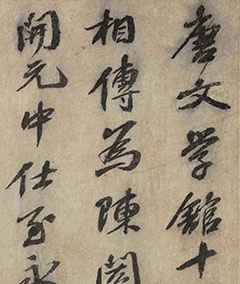 唐文学館十
相傳為陳閎
開元中仕至永